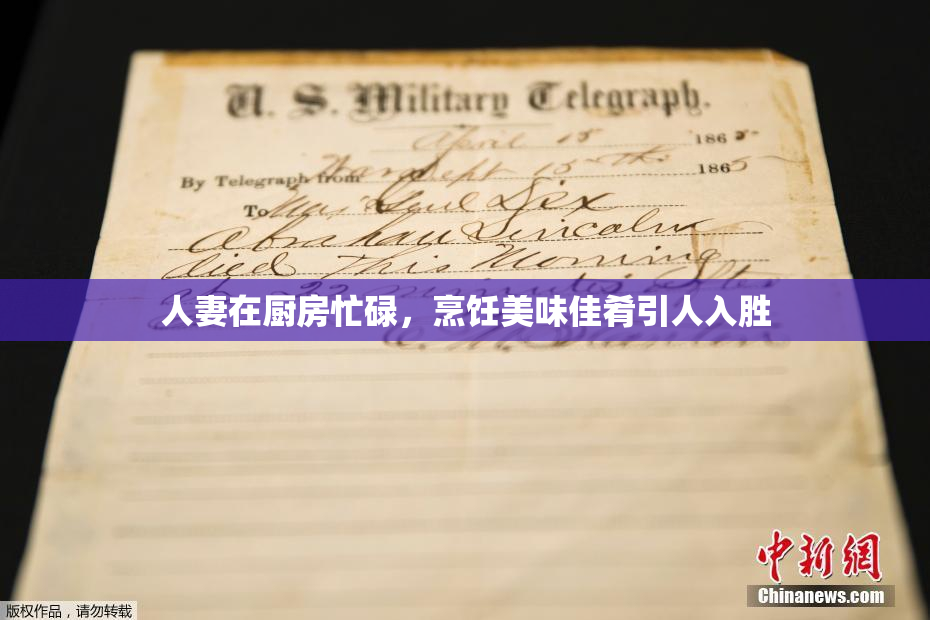 U. S. Military Telegraph.
April 15 1865
By Telegraph from War Dept 15th 1865
To Maj Genl Dix
Abraham Lincoln
died This Morning
at 22 minutes after
人妻在厨房忙碌，烹饪美味佳肴引人入胜
E. M. Stanton
中新网
Chinanews.com
版权作品，请勿转载